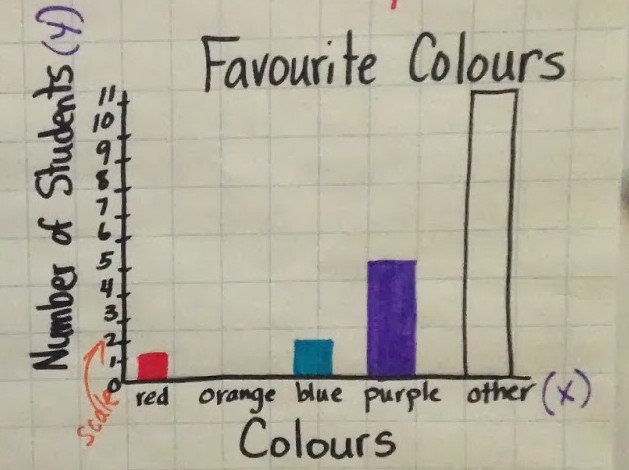 Favourite Colours
Number of Students (y)
11
10
9
8
7
6
5
4
3
2
1
0
Scale
red orange blue purple other (x)
Colours